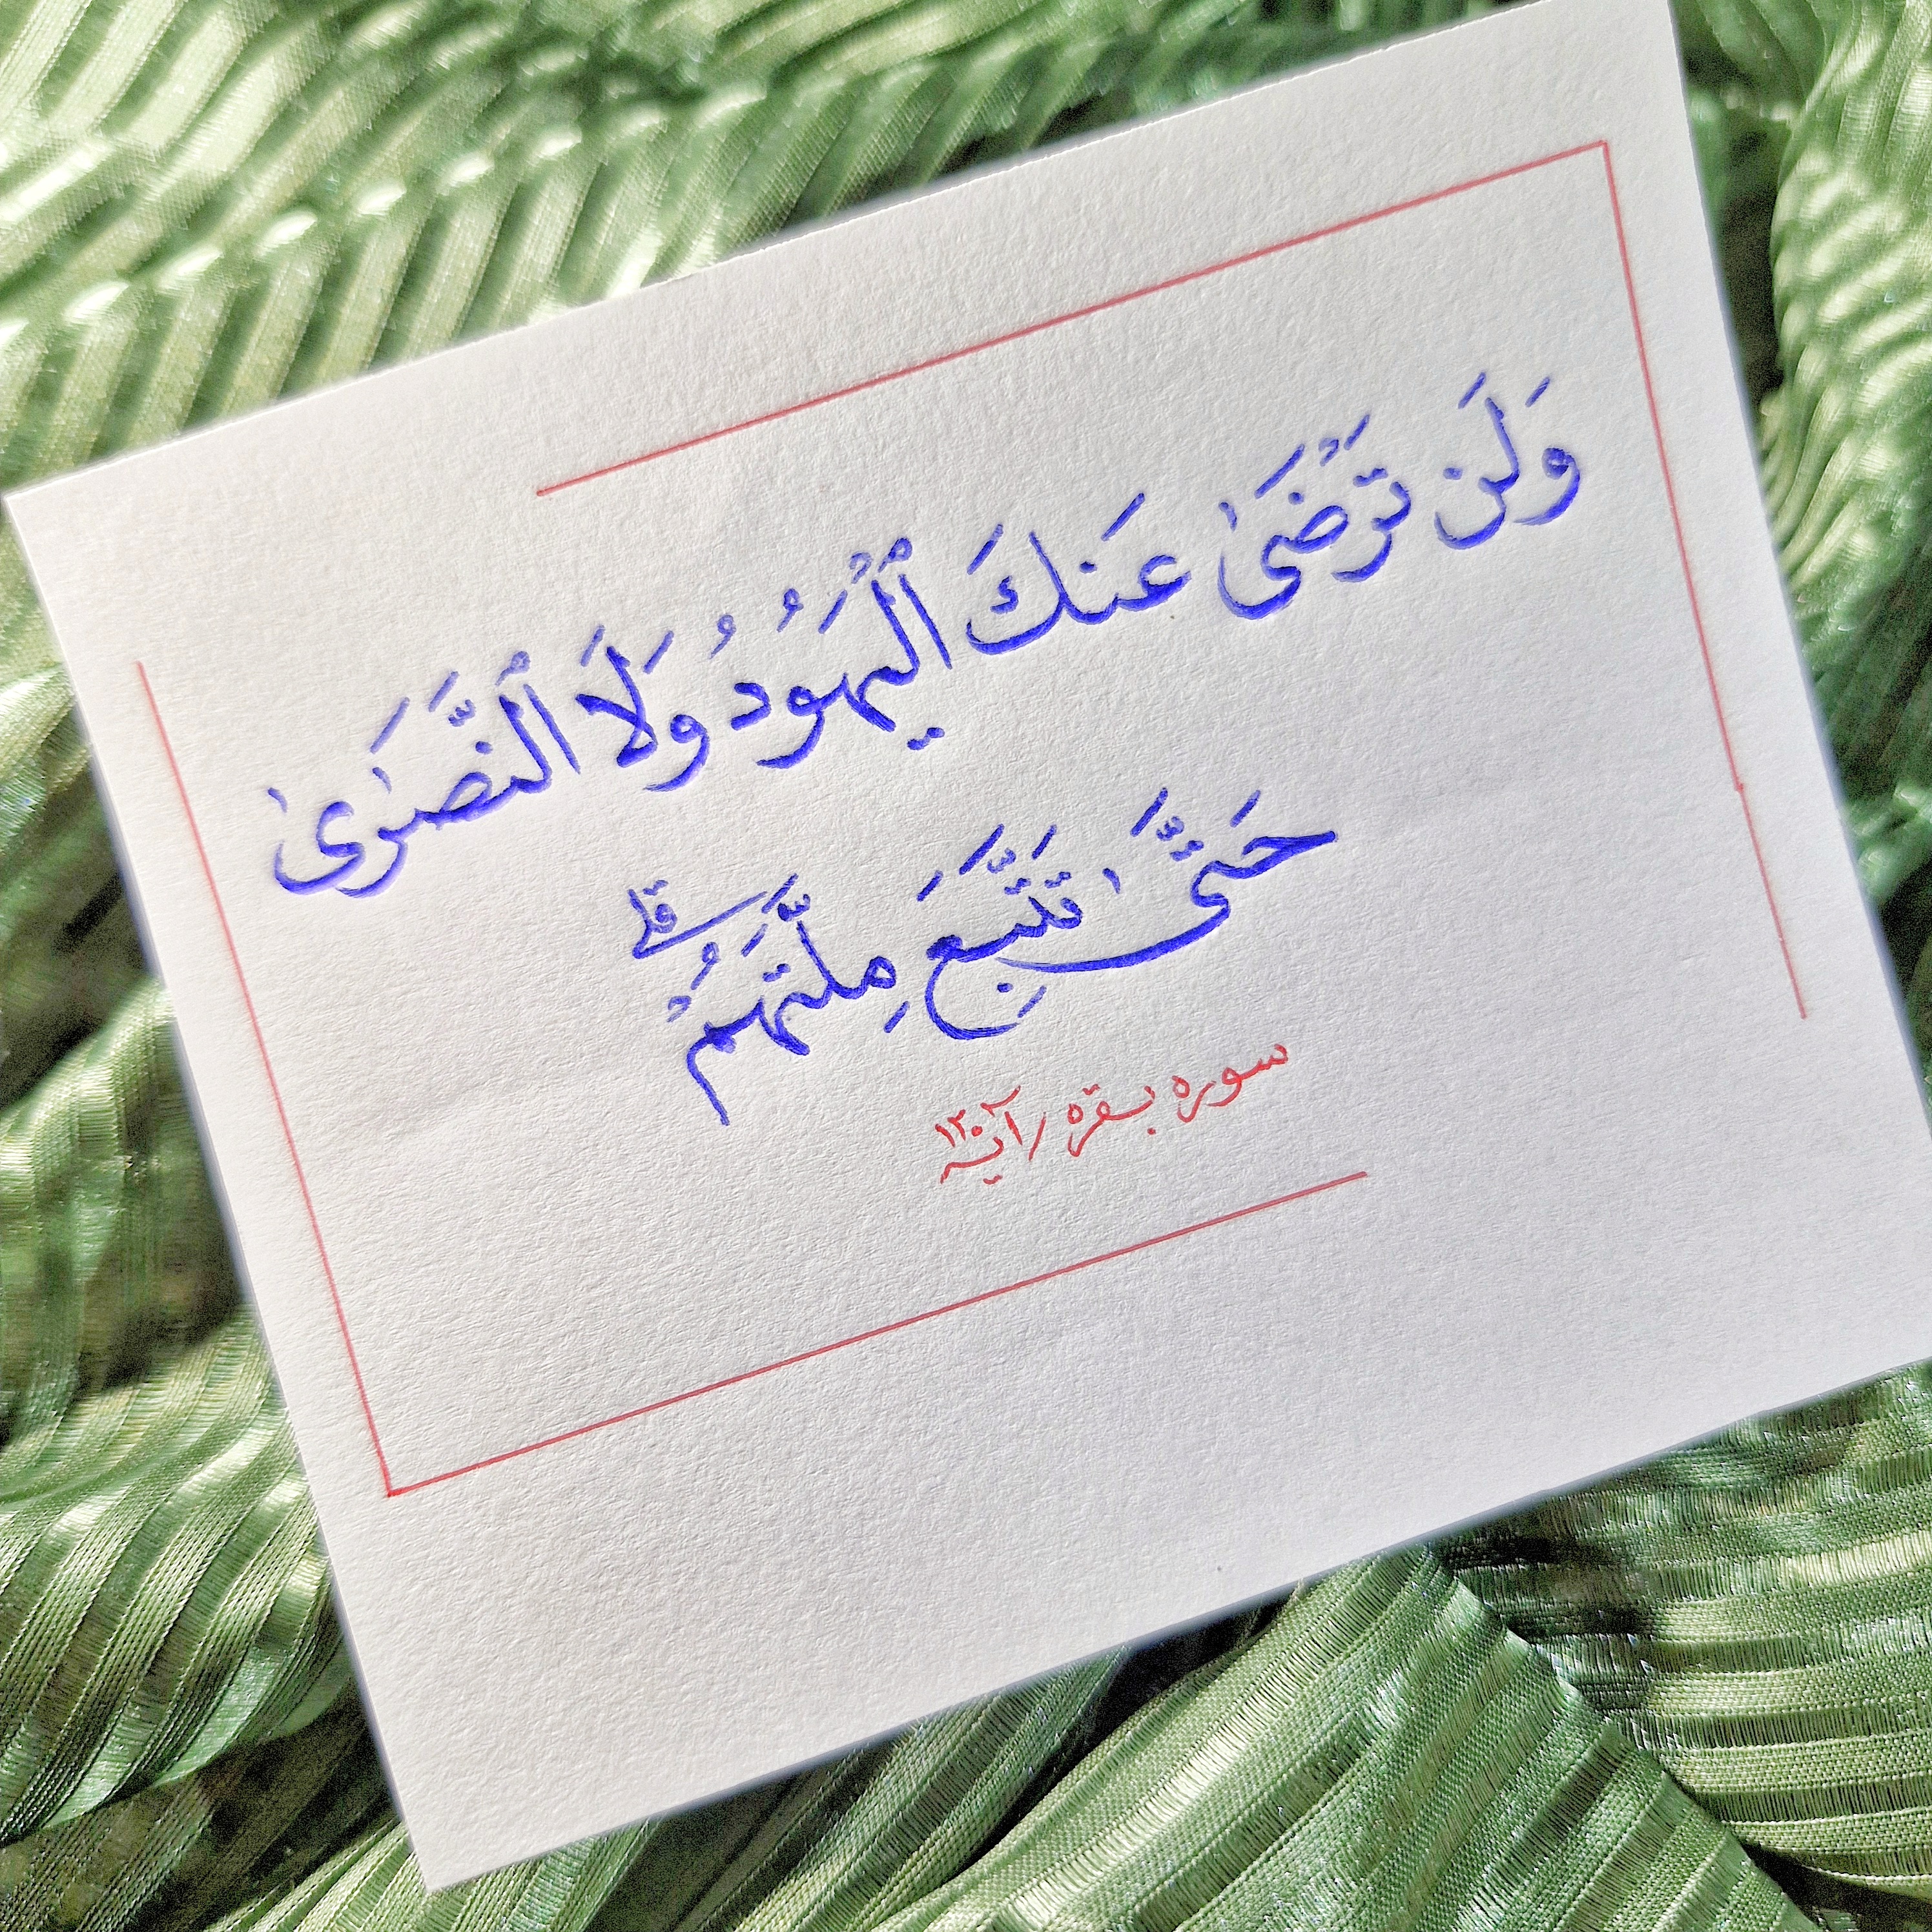 وَلَن تَرْضَىٰ عَنكَ ٱلْيَهُودُ وَلَا ٱلنَّصَـٰرَىٰ
حَتَّىٰ تَتَّبِعَ مِلَّتَهُمْ ۗ
سوره بقره / آیه ۱۲۰